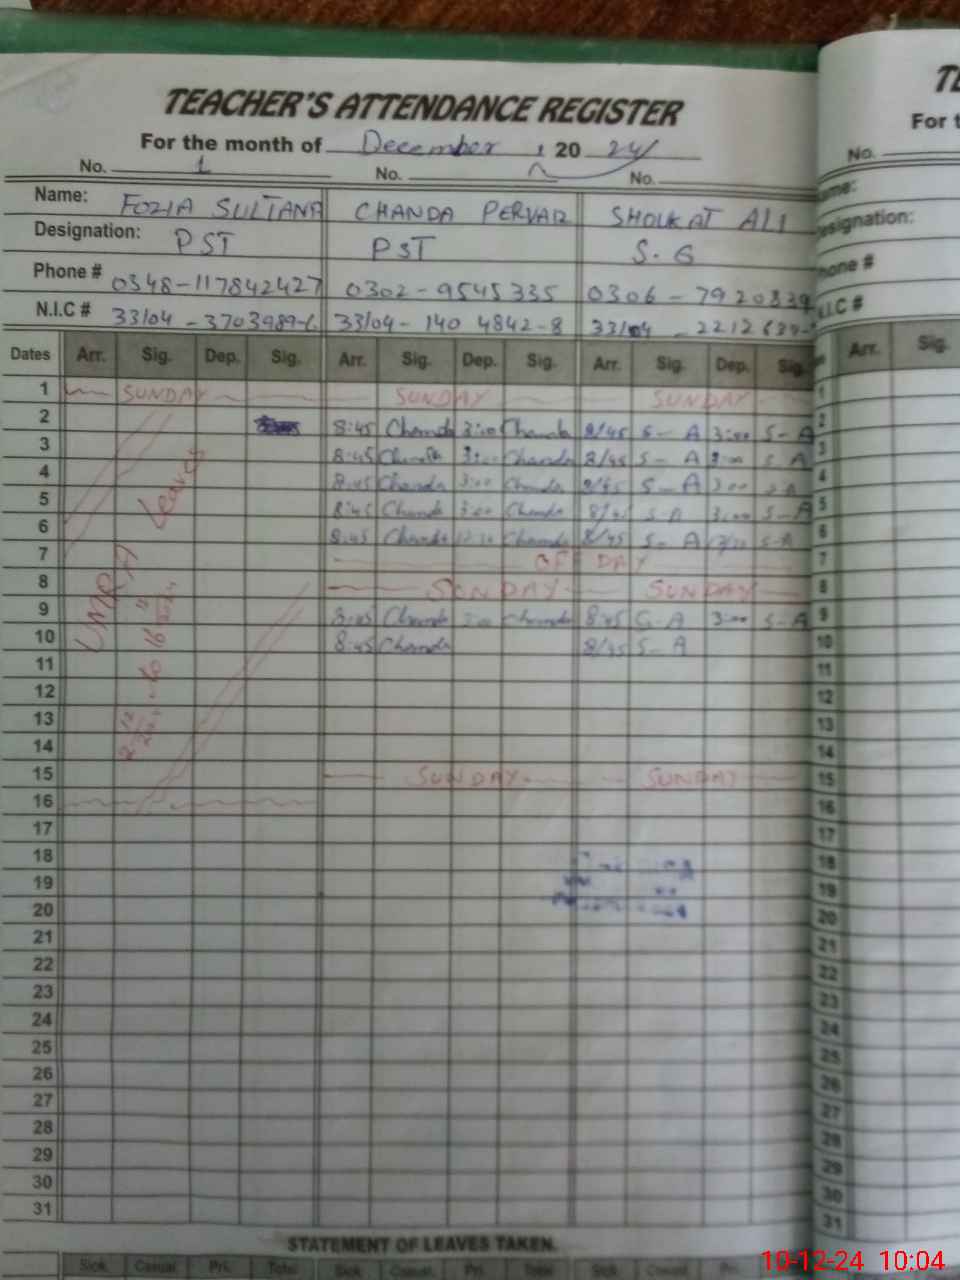 TEACHER'S ATTENDANCE REGISTER
For the month of December, 2024
No. 1 No. No.
Name: FOZIA SULTANA CHANDA PERVAR SHOUKAT ALI
Designation: PST PST S.G
Phone # 0348-117842427 0302-9545335 0306-7920839
N.I.C # 33104-3703989-6 33104-1404842-8 33104-2212639-
Dates Arr. Sig. Dep. Sig. Arr. Sig. Dep. Sig. Arr. Sig. Dep. Sig.
1 SUNDAY SUNDAY SUNDAY
2 8:45 Chanda 3:00 Chanda 8/45 S-A 3:00 S-A
3 8:45 Chanda 3:00 Chanda 8/45 S-A 3:00 S-A
4 8:45 Chanda 3:00 Chanda 8/45 S-A 3:00 S-A
5 8:45 Chanda 3:00 Chanda 8/45 S-A 3:00 S-A
6 8:45 Chanda 12:30 Chanda 8/45 S-A S-A
7 OFF DAY
8 SUNDAY SUNDAY
9 8:45 Chanda 3:00 Chanda 8:45 S-A 3:00 S-A
10 8:45 Chanda 8/45 S-A
11
12
13
14
15 SUNDAY SUNDAY
16
17
18
19
20
21
22
23
24
25
26
27
28
29
30
31
UMRA Leaves
2-12-2024 to 16
STATEMENT OF LEAVES TAKEN.
Sick Casual Pri. Total Sick Casual Pri. Total Sick Casual
TE
For t
No.
Name:
Designation:
Phone #
N.I.C #
Arr. Sig.
1
2
3
4
5
6
7
8
9
10
11
12
13
14
15
16
17
18
19
20
21
22
23
24
25
26
27
28
29
30
31
10-12-24 10:04